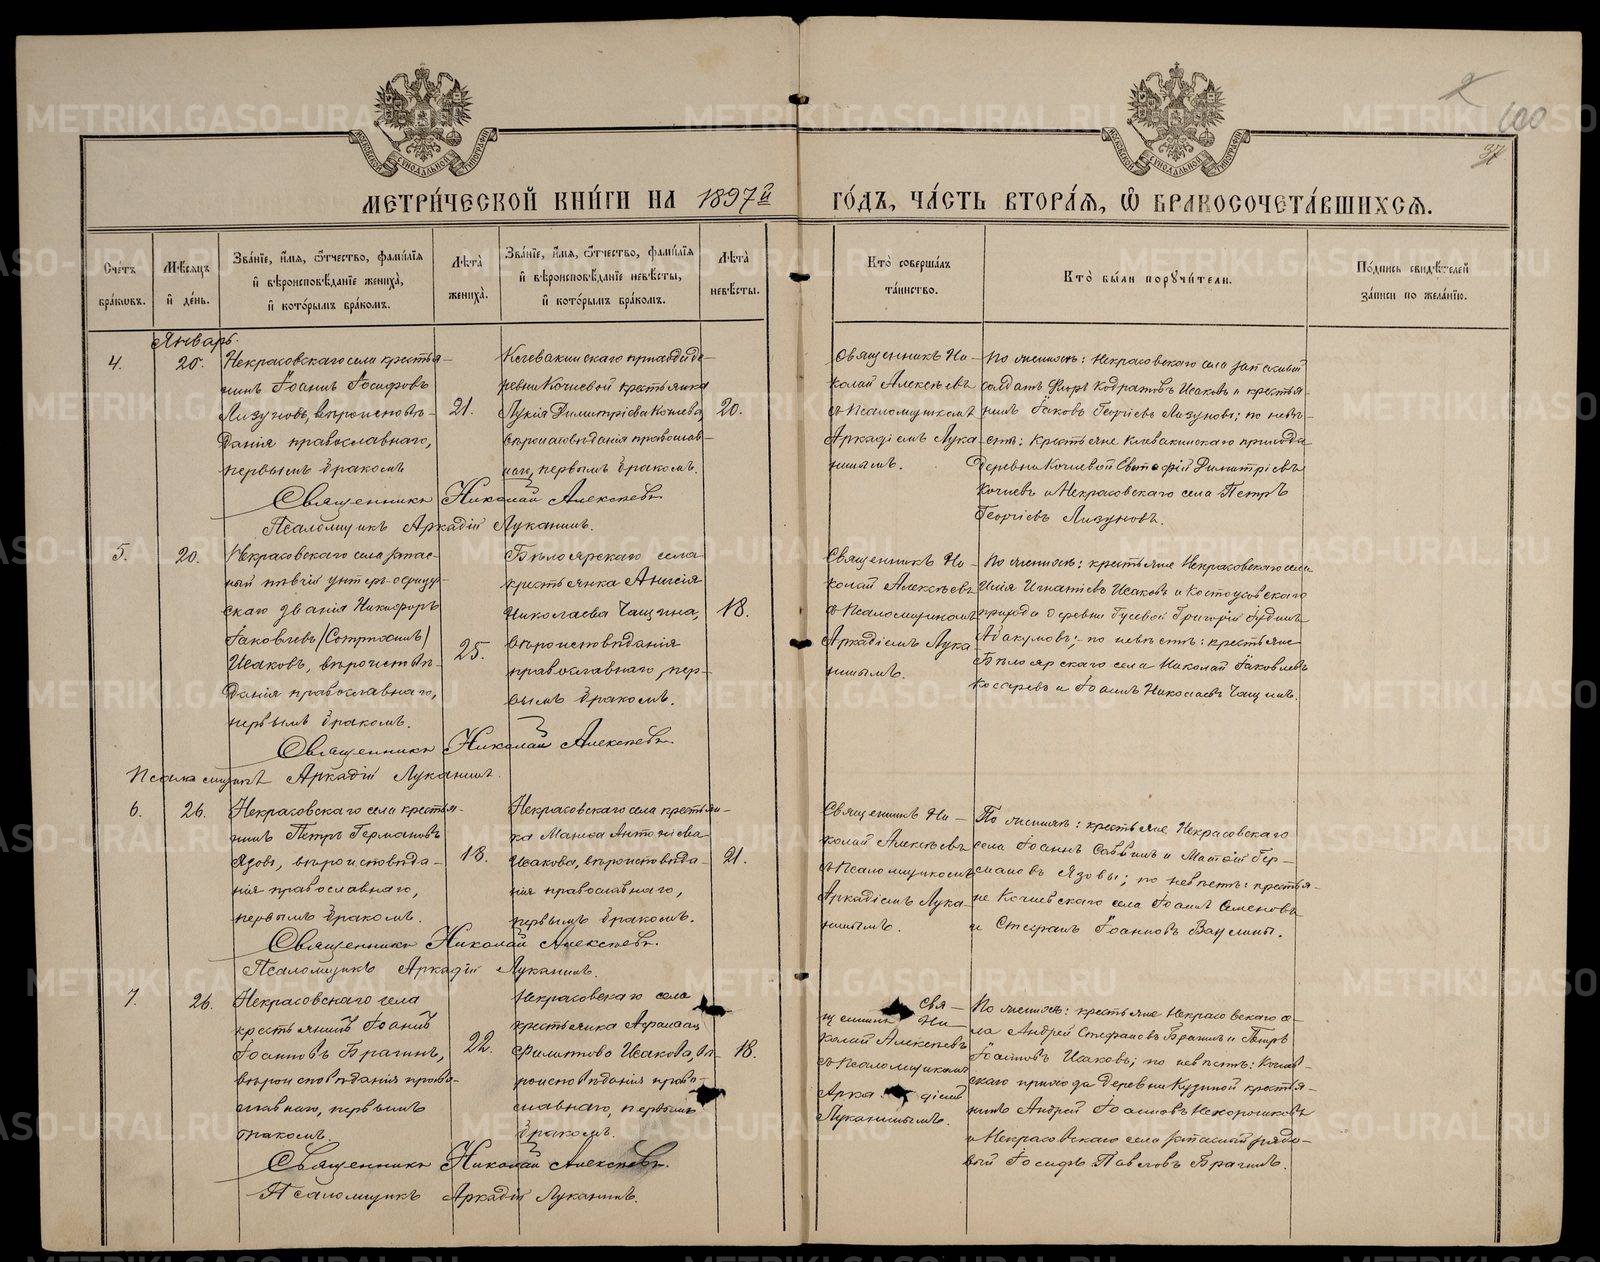 МЕТРИ́ЧЕСКОЙ КНИ́ГИ НА 1897й ГО́ДЪ, ЧА́СТЬ ВТОРА́Я, Ѡ БРАКОСОЧЕТА́ВШИХСЯ.
Сче́тъ бра́ковъ.
Мѣ́сяцъ и́ де́нь.
Зва́нїе, и́мя, ѻ҆́тчество, фами́лїя и́ вѣроисповѣ́данїе жениха̀, и́ кото́рымъ бра́комъ.
Лѣ́та жениха̀.
Зва́нїе, и́мя, ѻ҆́тчество, фами́лїя и́ вѣроисповѣ́данїе невѣ́сты, и́ кото́рымъ бра́комъ.
Лѣ́та невѣ́сты.
Кто̀ соверша́лъ та́инство.
Кто̀ бы́ли порꙋчи́тели.
По́дпись свидѣ́телей за́писи по жела́нїю.
Январь.
4.
20.
Некрасовскаго села крестья-
нинъ Іоаннъ Іосифовъ
Лизуновъ, вѣроисповѣ-
данія православнаго,
первымъ бракомъ
21.
Клевакинскаго прихода де-
ревни Кочневой крестьянка
Лукія Димитріева Кочнева,
вѣроисповѣданія православ-
наго, первымъ бракомъ.
20.
Священникъ Ни-
колай Алексѣевъ
съ Псаломщикомъ
Аркадіемъ Лука-
нинымъ.
По женихѣ: Некрасовскаго села запасный
солдатъ Кодратовъ Исаковъ и крестья-
нинъ Іаковъ Георгіевъ Лизуновъ; по невѣ-
стѣ: крестьяне Клевакинскаго прихода
деревни Кочневой Димитріевъ
Кочневъ и Некрасовскаго села Петръ
Георгіевъ Лизуновъ.
Священникъ Николай Алексѣевъ.
Псаломщикъ Аркадій Луканинъ.
5.
20.
Некрасовскаго села запас-
ный унтеръ-офицер-
скаго званія Никифоръ
Іаковлевъ
Исаковъ, вѣроисповѣ-
данія православнаго,
первымъ бракомъ.
25.
Бѣлоярскаго села
крестьянка Анисія
Николаева Чащина,
вѣроисповѣданія
православнаго, пер-
вымъ бракомъ.
18.
Священникъ Ни-
колай Алексѣевъ
съ Псаломщикомъ
Аркадіемъ Лука-
нинымъ.
По женихѣ: крестьяне Некрасовскаго села
Илія Игнатіевъ Исаковъ и Костоусовскаго
прихода деревни Гусевой Григорій
Абакумовъ; по невѣстѣ: крестьяне
Бѣлоярскаго села Николай Іаковлевъ
Косаревъ и Іоаннъ Николаевъ Чащинъ.
Священникъ Николай Алексѣевъ.
Псаломщикъ Аркадій Луканинъ.
6.
26.
Некрасовскаго села крестья-
нинъ Петръ Германовъ
Язовъ, вѣроисповѣда-
нія православнаго,
первымъ бракомъ.
18.
Некрасовскаго села крестьян-
ка Антоніева
Исакова, вѣроисповѣда-
нія православнаго,
первымъ бракомъ.
21.
Священникъ Ни-
колай Алексѣевъ
съ Псаломщикомъ
Аркадіемъ Лука-
нинымъ.
По женихѣ: крестьяне Некрасовскаго
села Іоаннъ Саввинъ и Матѳій Гер-
мановъ Язовы; по невѣстѣ: крестья-
не Кочневскаго села Іоаннъ Семеновъ
и Стефанъ Іоанновъ Ваулины.
Священникъ Николай Алексѣевъ.
Псаломщикъ Аркадій Луканинъ.
7.
26.
Некрасовскаго села
крестьянинъ Іоаннъ
Іоанновъ Брагинъ,
вѣроисповѣданія право-
славнаго, первымъ
бракомъ.
22.
Некрасовскаго села
крестьянка
Филиппова Исакова, вѣ-
роисповѣданія право-
славнаго, первымъ
бракомъ.
18.
Свя-
щенникъ Ни-
колай Алексѣевъ
съ Псаломщикомъ
Аркадіемъ
Луканинымъ.
По женихѣ: крестьяне Некрасовскаго се-
ла Андрей Стефановъ Брагинъ и Петръ
Іоанновъ Исаковъ; по невѣстѣ: Кочнев-
скаго прихода деревни Кузиной крестья-
нинъ Андрей Іоанновъ Нехорошковъ
и Некрасовскаго села запасный рядо-
вой Іосифъ Павловъ Брагинъ.
Священникъ Николай Алексѣевъ.
Псаломщикъ Аркадій Луканинъ.
METRIKI.GASO-URAL.RU